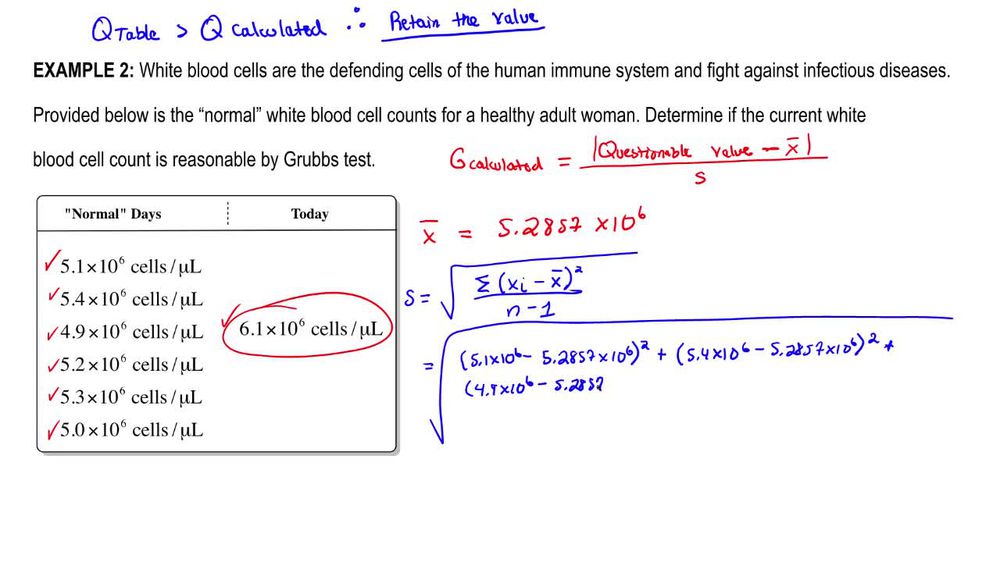 Q Table > Q calculated ∴ Retain the value
EXAMPLE 2: White blood cells are the defending cells of the human immune system and fight against infectious diseases.
Provided below is the “normal” white blood cell counts for a healthy adult woman. Determine if the current white
blood cell count is reasonable by Grubbs test.
G calculated = |Questionable value - x̄| / s
"Normal" Days Today
5.1×10⁶ cells/µL
5.4×10⁶ cells/µL
4.9×10⁶ cells/µL
5.2×10⁶ cells/µL
5.3×10⁶ cells/µL
5.0×10⁶ cells/µL
6.1×10⁶ cells/µL
x̄ = 5.2857 ×10⁶
s = √ Σ (xi - x̄)² / n - 1
= √ (5.1×10⁶ - 5.2857×10⁶)² + (5.4×10⁶ - 5.2857×10⁶)² +
(4.9×10⁶ - 5.2857